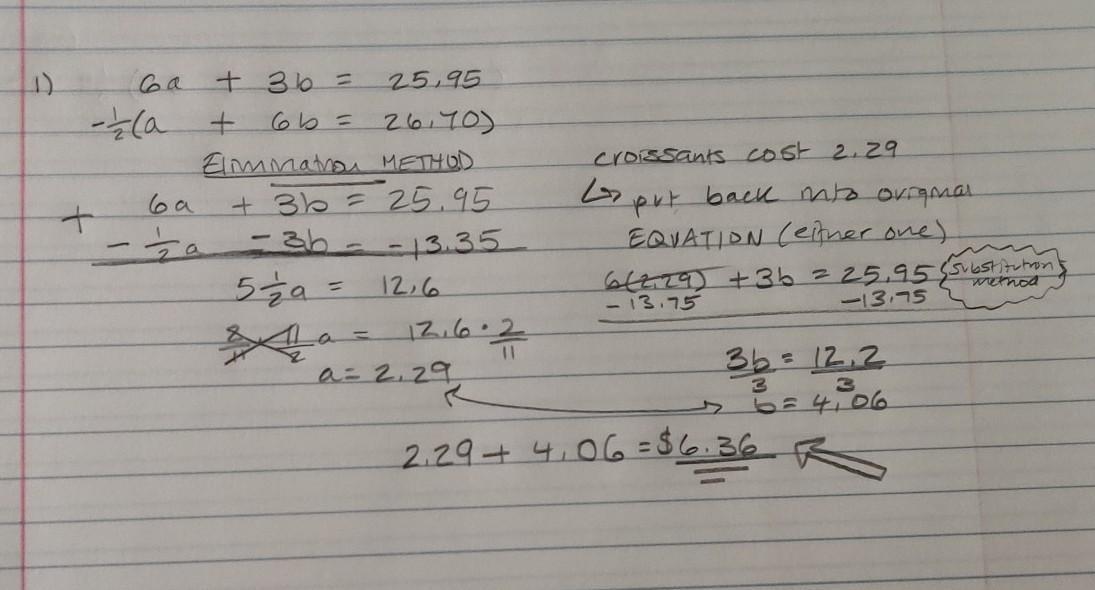 1) 6a + 3b = 25.95
-1/2(a + 6b = 26.70)
Elimination METHOD
+ 6a + 3b = 25.95
- 1/2a - 3b = -13.35
5 1/2a = 12.6
2/11 11/2 a = 12.6 · 2/11
a = 2.29
croissants cost 2.29
↳ put back into original
EQUATION (either one)
6(2.29) + 3b = 25.95 {substitution method}
-13.75 -13.75
3b/3 = 12.2/3
b = 4.06
2.29 + 4.06 = $6.36